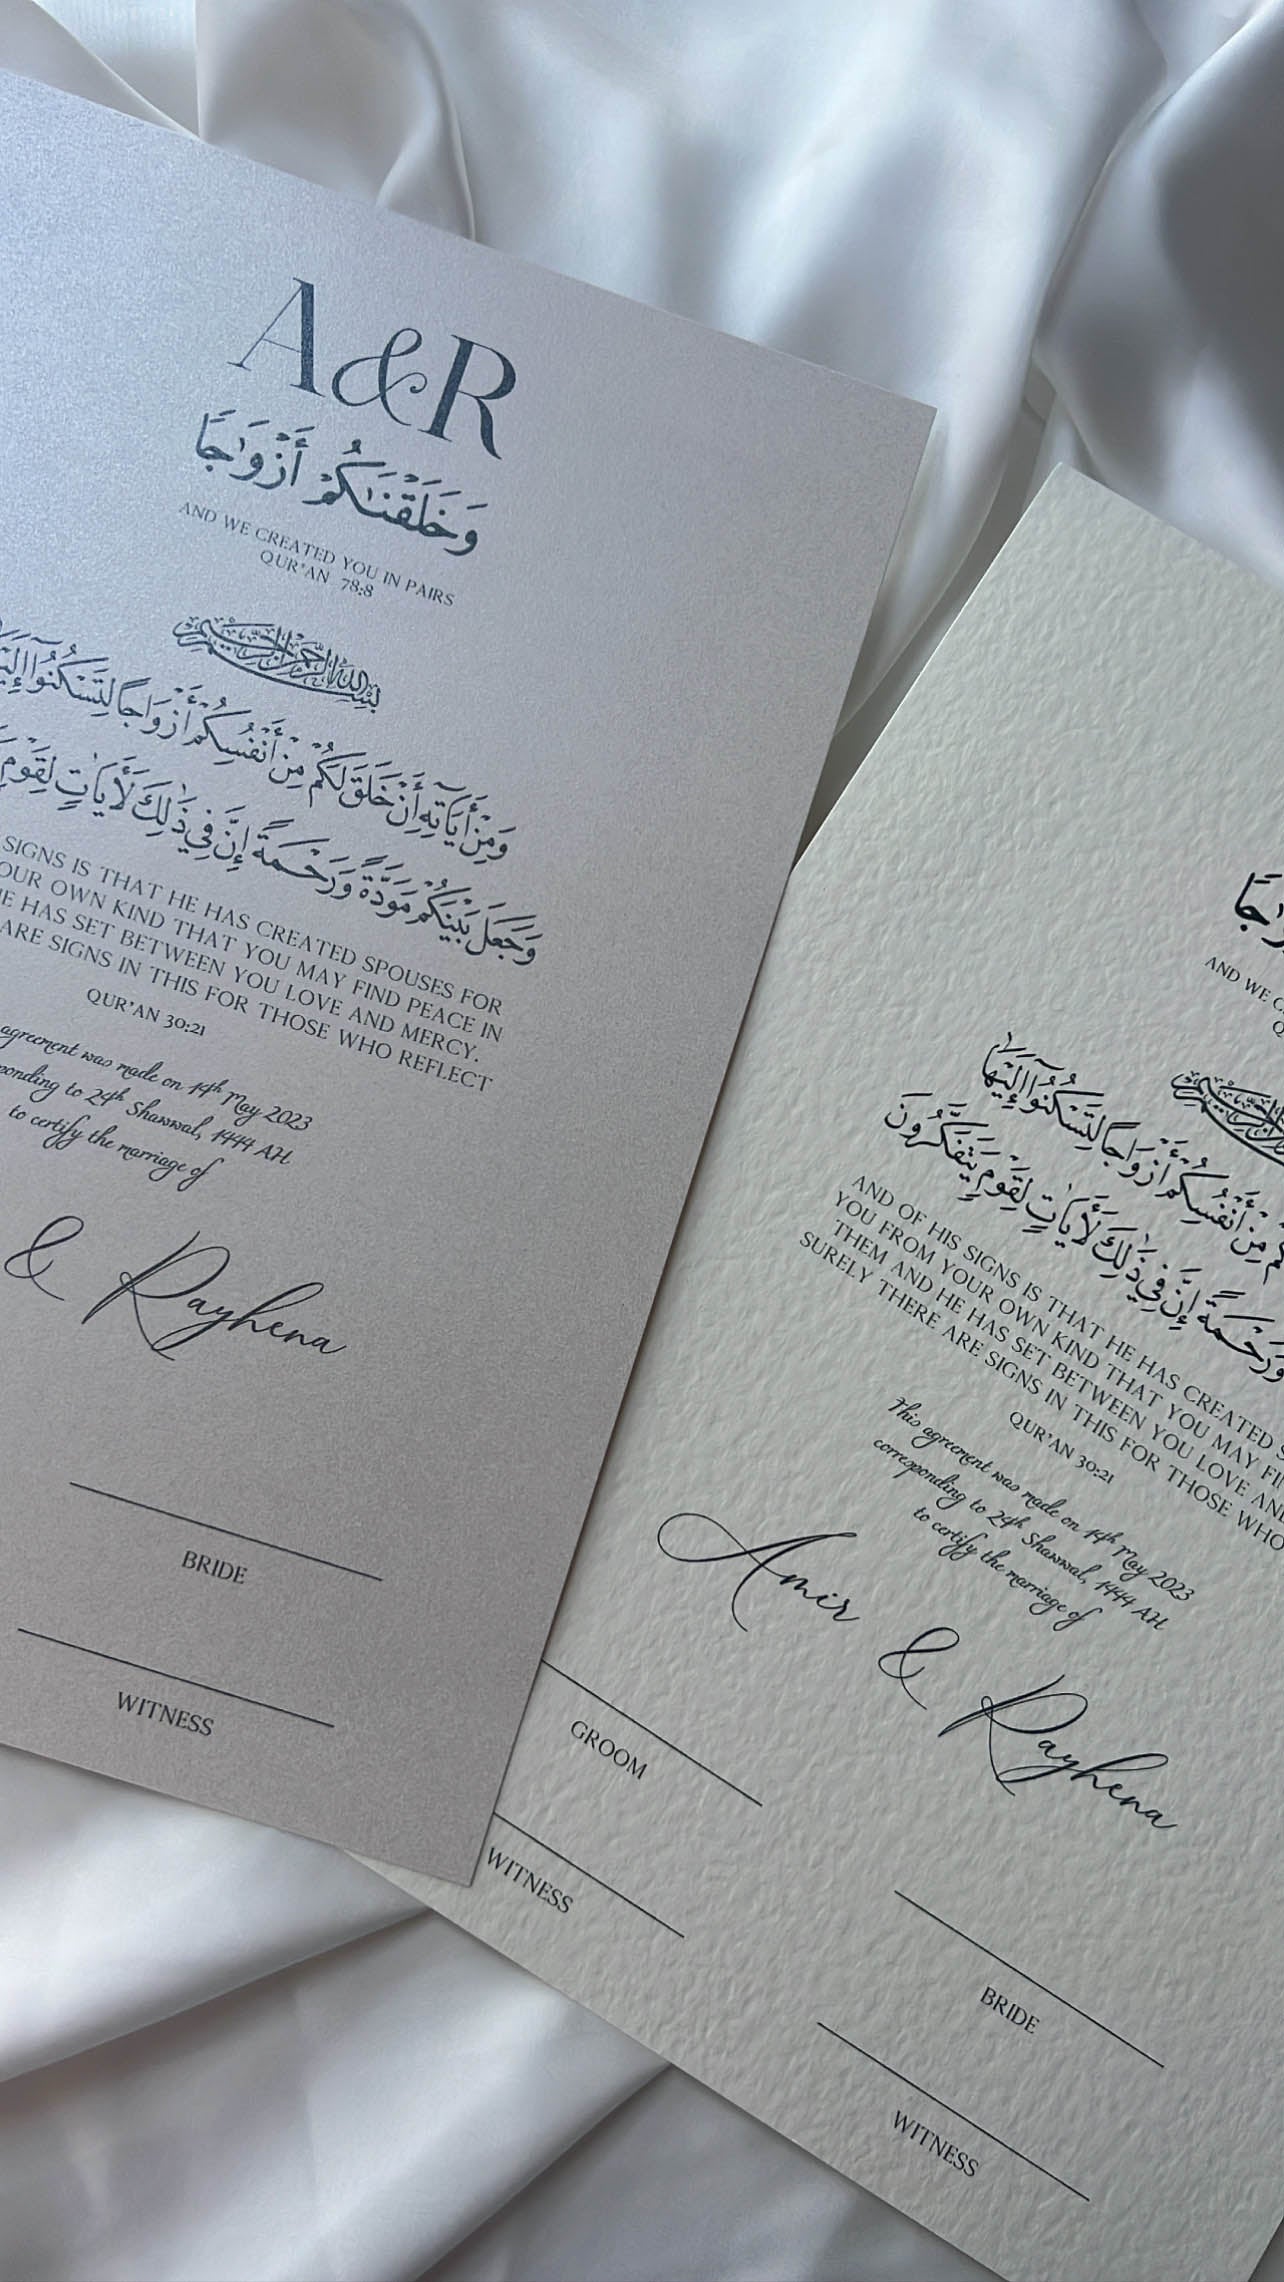 A&R
وَخَلَقْنَٰكُمْ أَزْوَٰجًا
AND WE CREATED YOU IN PAIRS
QUR'AN 78:8
بسم الله الرحمن الرحيم
وَمِنْ أَيَاتِهِ أَنْ خَلَقَ لَكُمْ مِنْ أَنْفُسِكُمْ أَزْوَاجًا لِتَسْكُنُوا
وَجَعَلَ بَيْنَكُمْ مَوَدَّةً وَرَحْمَةً إِنَّ فِي ذَٰلِكَ لَأَيَاتٍ لِقَوْمٍ
SIGNS IS THAT HE HAS CREATED SPOUSES FOR
OUR OWN KIND THAT YOU MAY FIND PEACE IN
HE HAS SET BETWEEN YOU LOVE AND MERCY.
ARE SIGNS IN THIS FOR THOSE WHO REFLECT
QUR'AN 30:21
agreement was made on 14th May 2023
ponding to 24th Shawwal, 1444 AH
to certify the marriage of
& Rayhena
BRIDE
WITNESS
AND WE C
مِنْ أَنْفُسِكُمْ أَزْوَاجًا لِتَسْكُنُوا إِلَيْهَا
وَرَحْمَةً إِنَّ فِي ذَٰلِكَ لَأَيَاتٍ لِقَوْمٍ يَتَفَكَّرُونَ
AND OF HIS SIGNS IS THAT HE HAS CREATED S
YOU FROM YOUR OWN KIND THAT YOU MAY FI
THEM AND HE HAS SET BETWEEN YOU LOVE AND
SURELY THERE ARE SIGNS IN THIS FOR THOSE WHO
QUR'AN 30:21
This agreement was made on 14th May 2023
corresponding to 24th Shawwal, 1444 AH
to certify the marriage of
Amir & Rayhena
GROOM
BRIDE
WITNESS
WITNESS